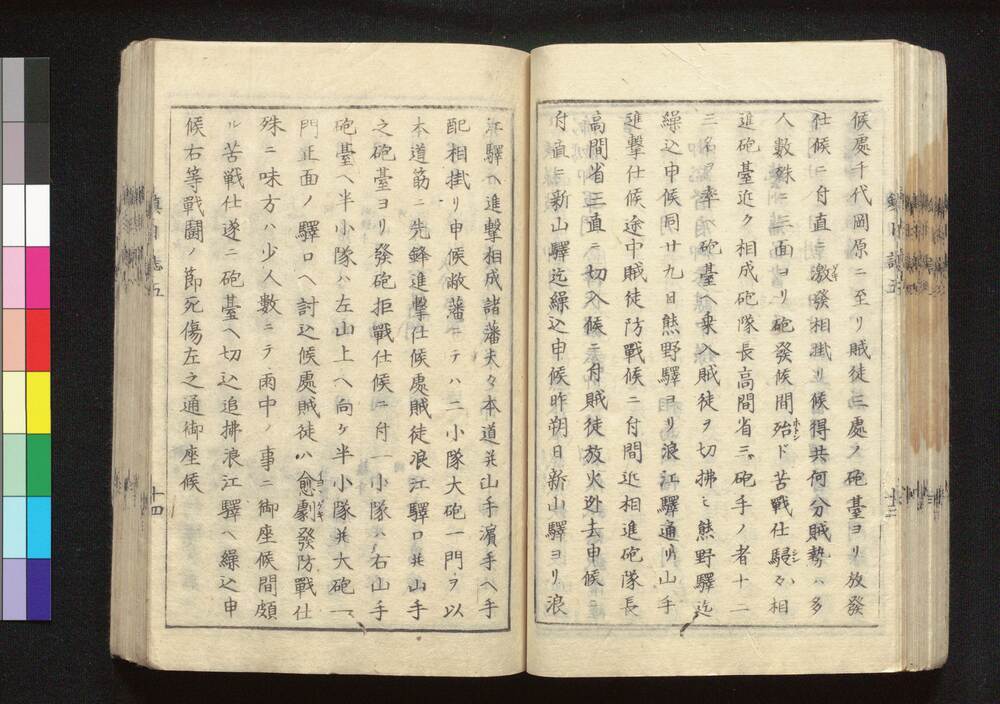 候處千代岡原ニ至リ賊徒三處ノ砲臺ヨリ放發
仕候ニ付直ニ激發相掛リ候得共何分賊勢ハ多
人數殊ニ三面ヨリ砲發候間殆ド苦戰仕駸々相
進砲臺近ク相成砲隊長高間省三砲手ノ者十二
三名ヲ率ヰ砲臺ヘ乘入賊徒ヲ切拂ヒ熊野驛迄
繰込申候同廿九日熊野驛ヨリ浪江驛通リ山手
進擊仕候途中賊徒防戰候ニ付間近相進砲隊長
高間省三直ニ切入候ニ付賊徒放火迯去申候ニ
付直ニ新山驛迄繰込申候昨朔日新山驛ヨリ浪
江驛ヘ進擊相成諸藩夫々本道幷山手濱手ヘ手
配相掛リ申候敝藩ニテハ二小隊大砲一門ヲ以
本道筋ニ先鋒進擊仕候處賊徒浪江驛口幷山手
之砲臺ヨリ發砲拒戰仕候ニ付一小隊ハ右山手
砲臺ヘ半小隊ハ左山上ヘ向ケ半小隊幷大砲一
門正面ノ驛口ヘ討込候處賊徒ハ愈劇發防戰仕
殊ニ味方ハ少人數ニテ雨中ノ事ニ御座候間頗
ル苦戰仕遂ニ砲臺ヘ切込追拂浪江驛ヘ繰込申
候右等戰鬪ノ節死傷左之通御座候
十四